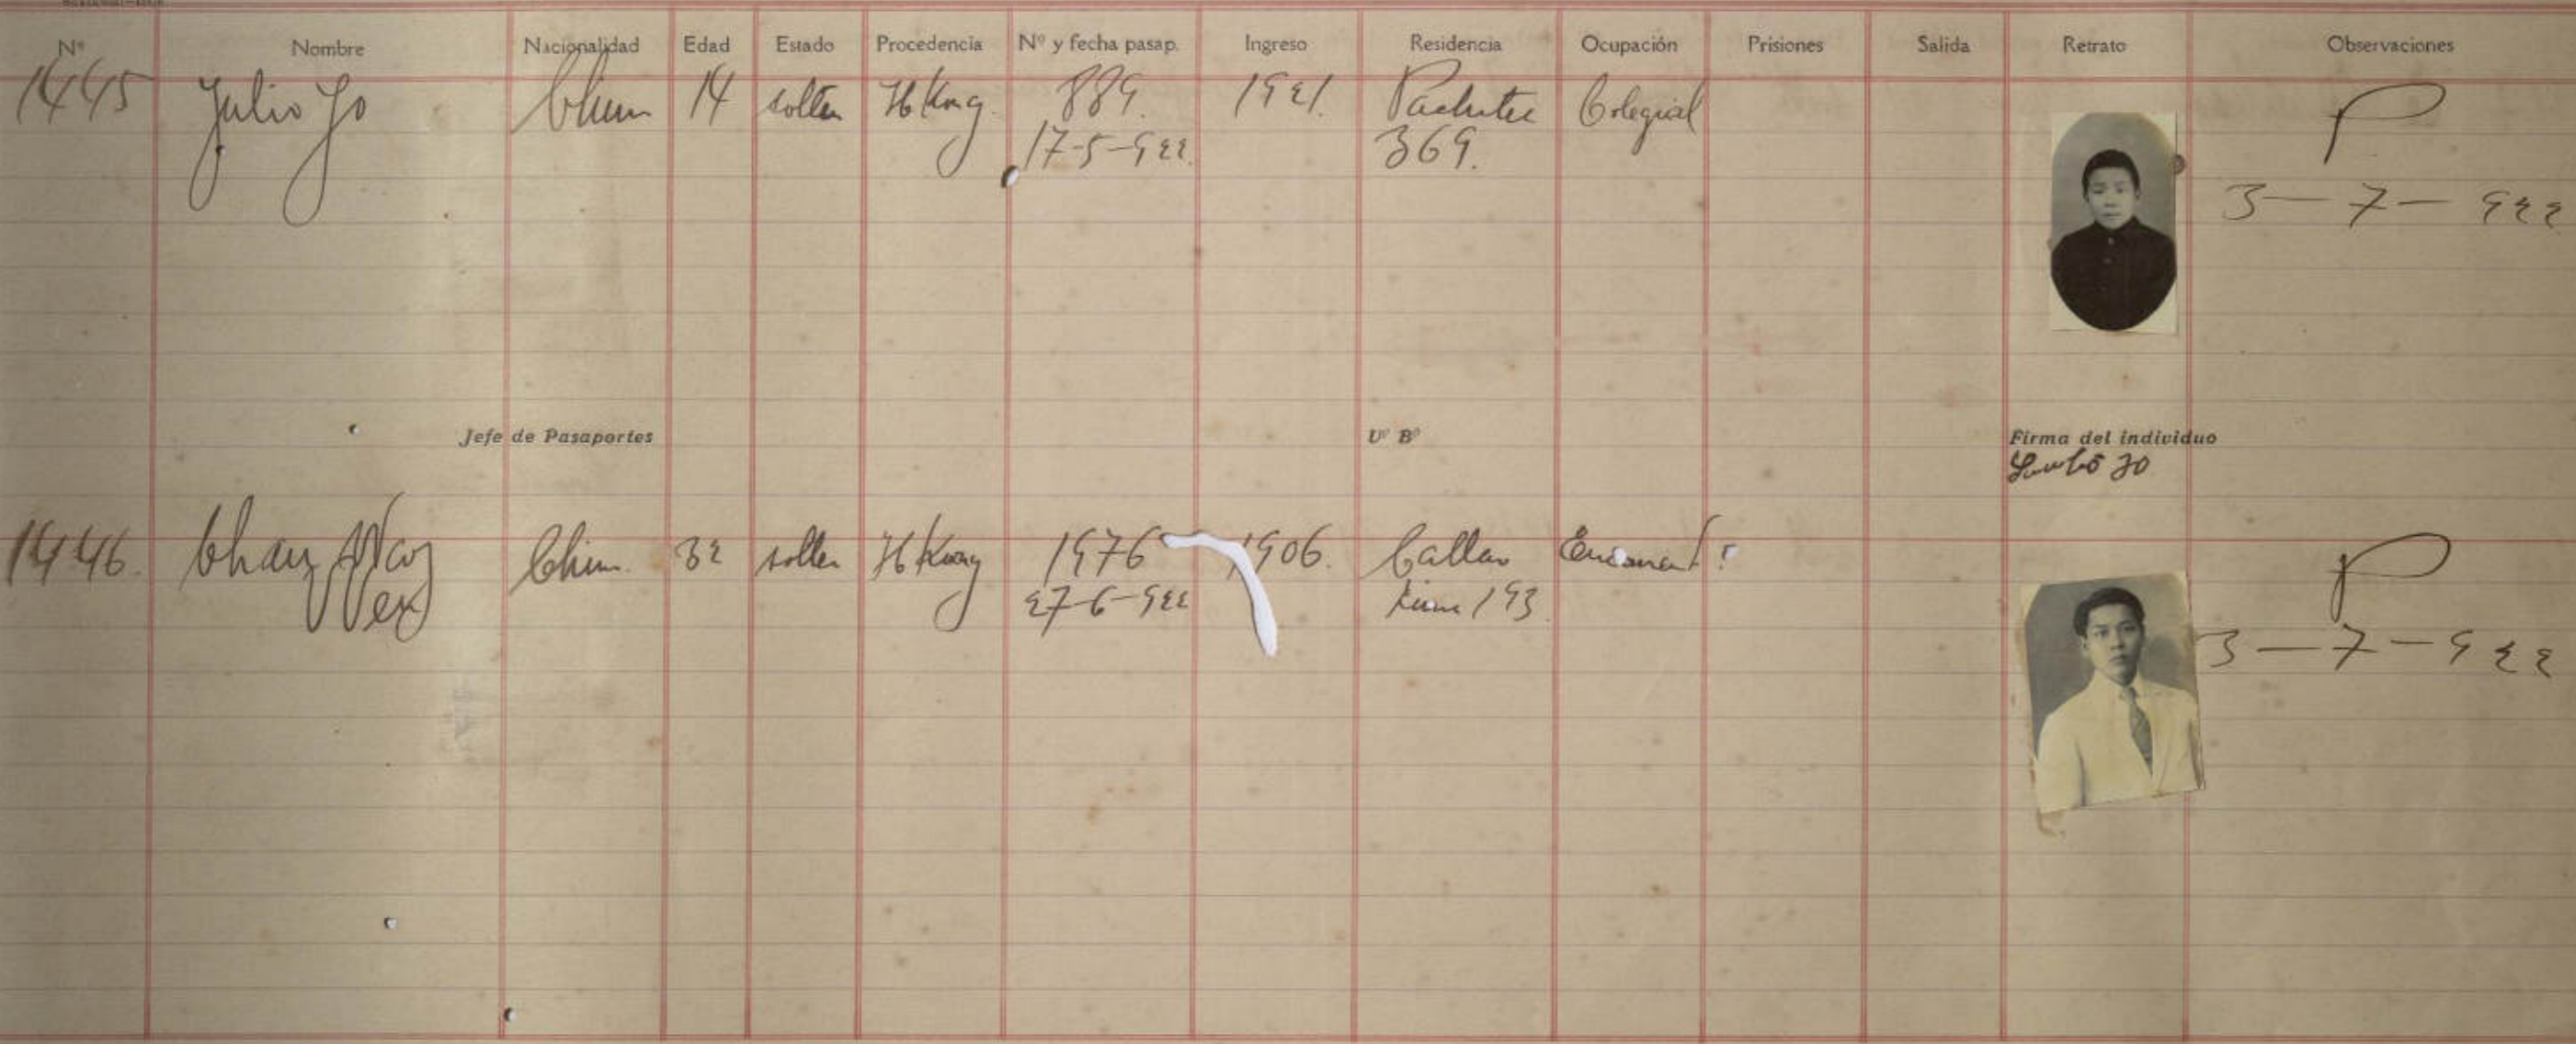 Nº Nombre Nacionalidad Edad Estado Procedencia Nº y fecha pasap. Ingreso Residencia Ocupación Prisiones Salida Retrato Observaciones
1445 Julio Jo Chin 14 solter H Kong. 889. 1921. Pachitea Colegial P
17-5-922. 369. 3-7-922
Jefe de Pasaportes Vº Bº Firma del individuo
Jo
1446. Chan Chin. 32 solter H Kong 1976 1906. Callao P
27-6-922 Lima 193 3-7-922